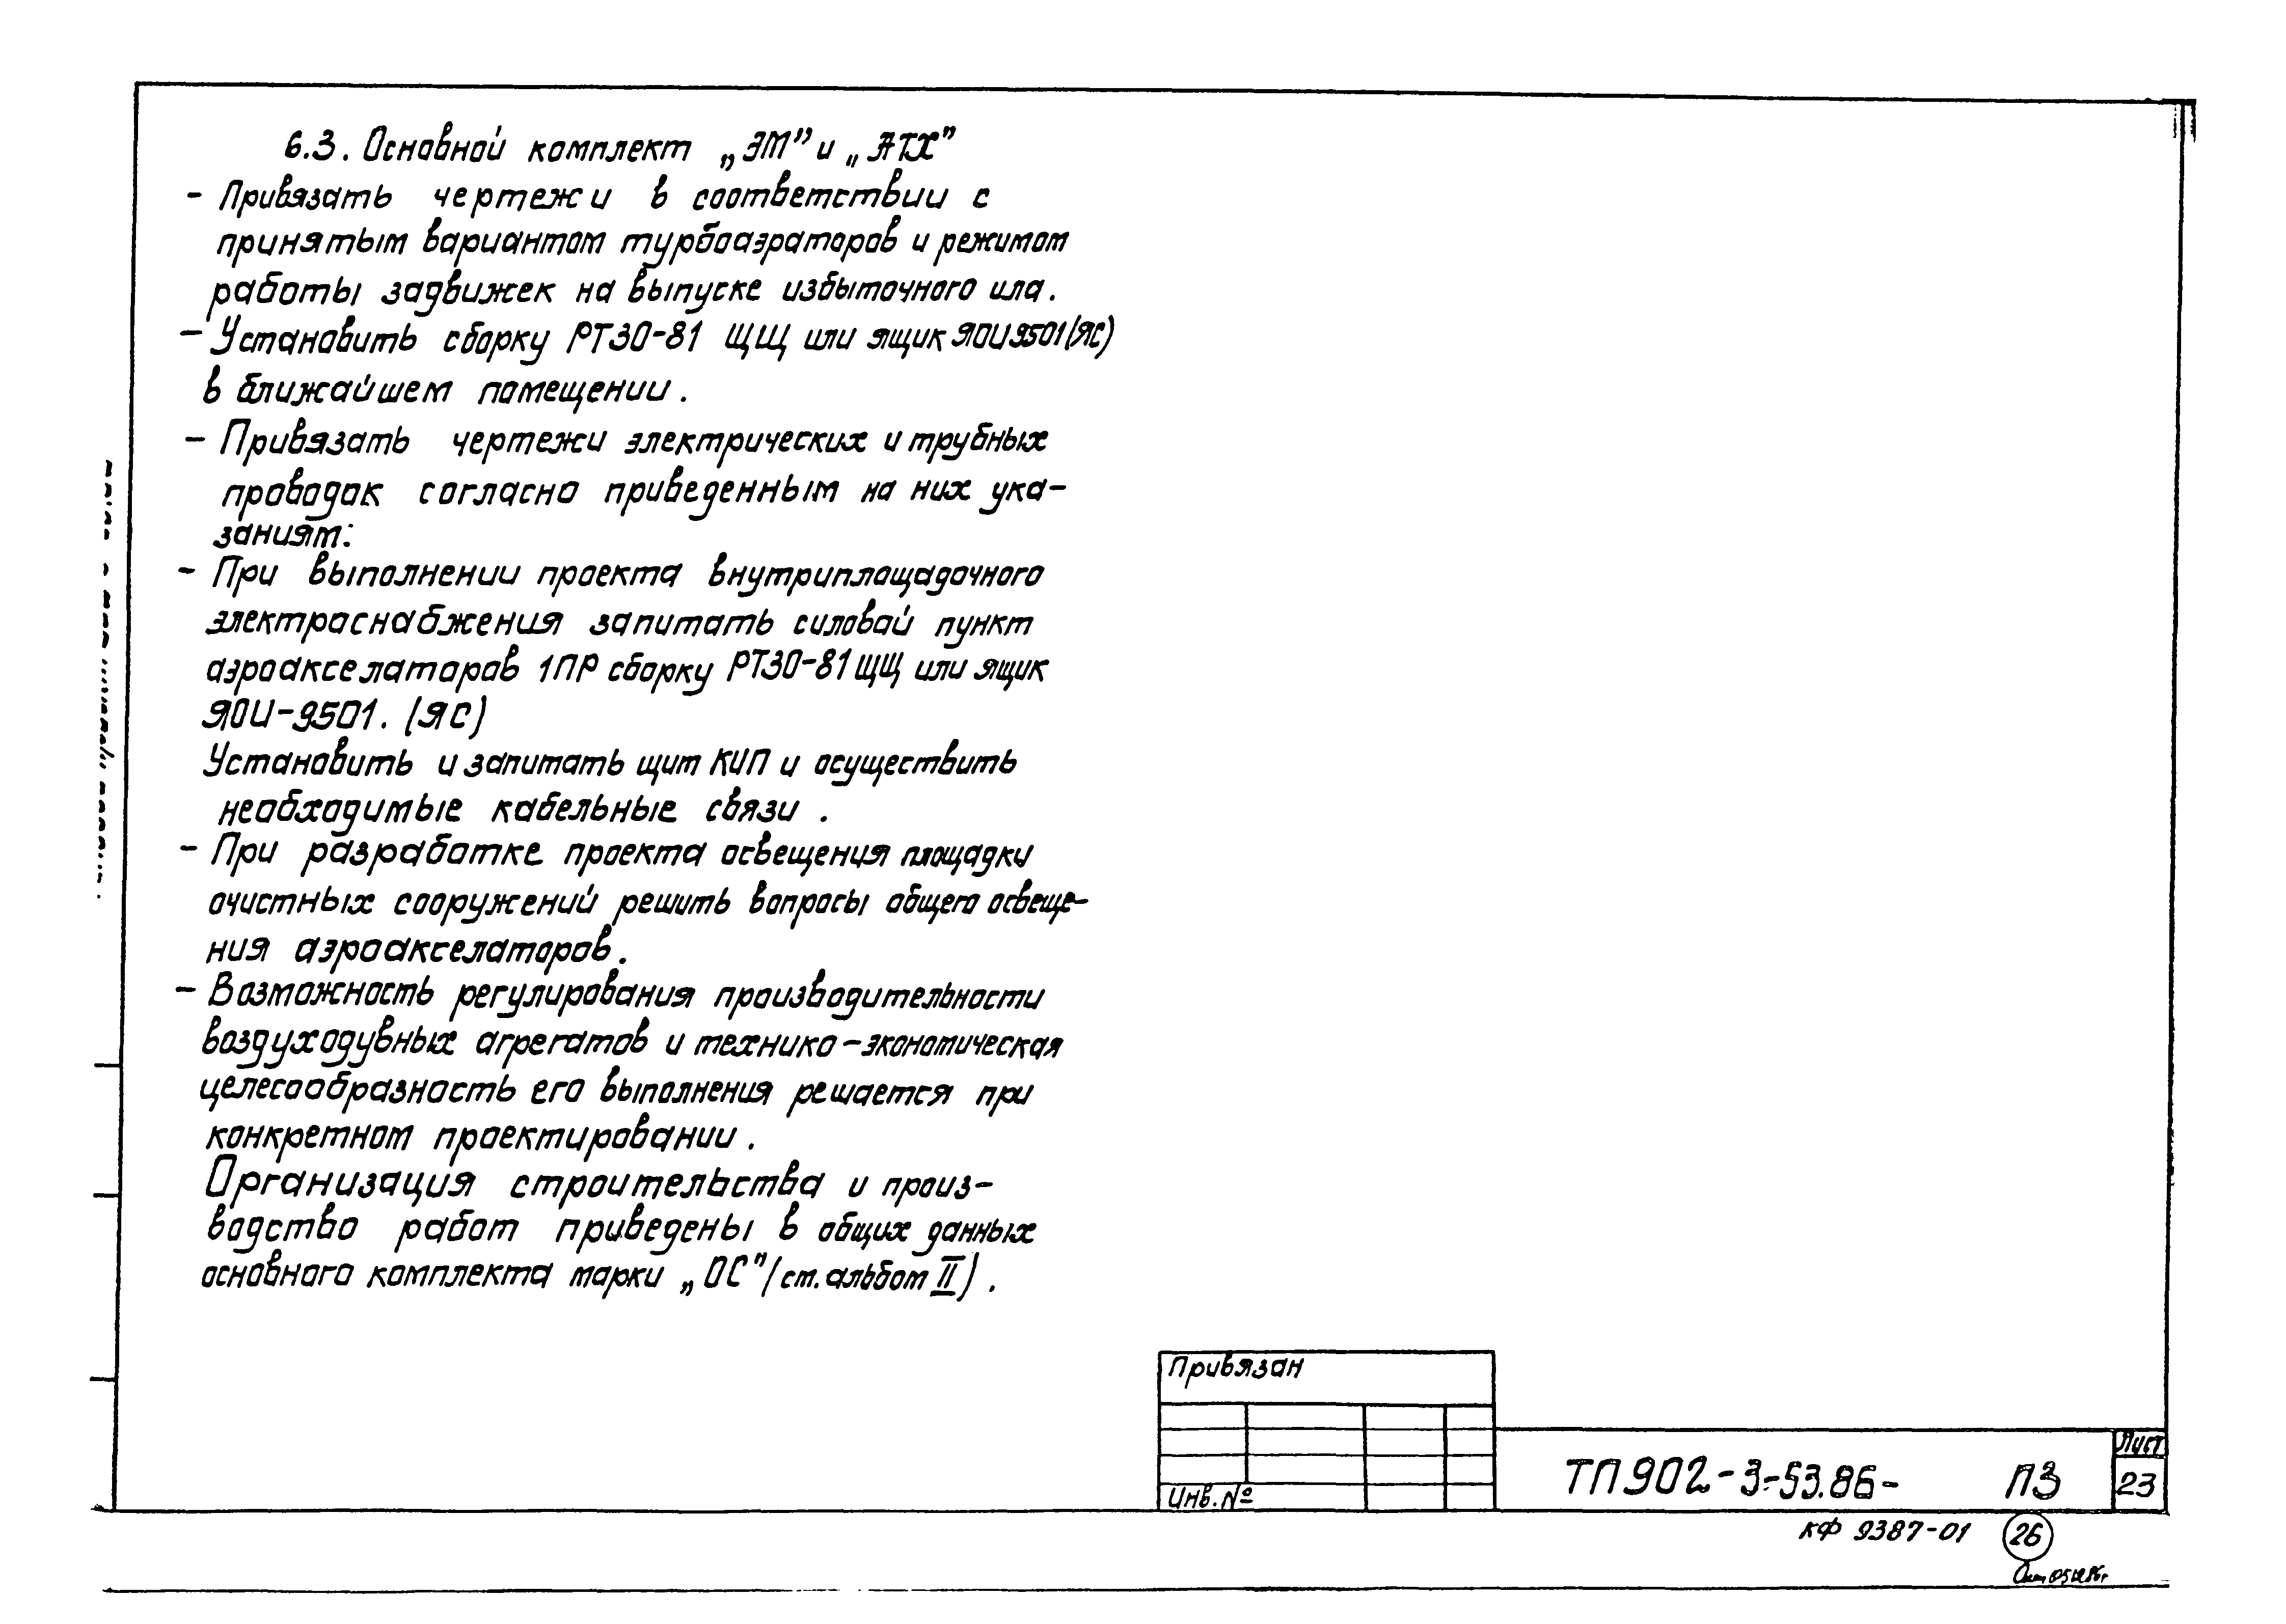 6.3. Основной комплект „ЭМ” и „АТХ”
- Привязать чертежи в соответствии с
принятым вариантом турбоаэраторов и режимом
работы задвижек на выпуске избыточного ила.
- Установить сборку РТ30-81 ЩЩ или ящик ЯОИ9501(ЯС)
в ближайшем помещении.
- Привязать чертежи электрических и трубных
проводок согласно приведенным на них ука-
заниям:
- При выполнении проекта внутриплощадочного
электроснабжения запитать силовой пункт
аэроакселаторов 1ПР сборку РТ30-81 ЩЩ или ящик
ЯОИ-9501. (ЯС)
Установить и запитать щит КИП и осуществить
необходимые кабельные связи.
- При разработке проекта освещения площадки
очистных сооружений решить вопросы общего освеще-
ния аэроакселаторов.
- Возможность регулирования производительности
воздуходувных агрегатов и технико-экономическая
целесообразность его выполнения решается при
конкретном проектировании.
Организация строительства и произ-
водство работ приведены в общих данных
основного комплекта марки „ОС” (см. альбом II).
Привязан
Инв. №
ТП902-3-53.86- ПЗ
Лист
23
КФ 9387-01
26